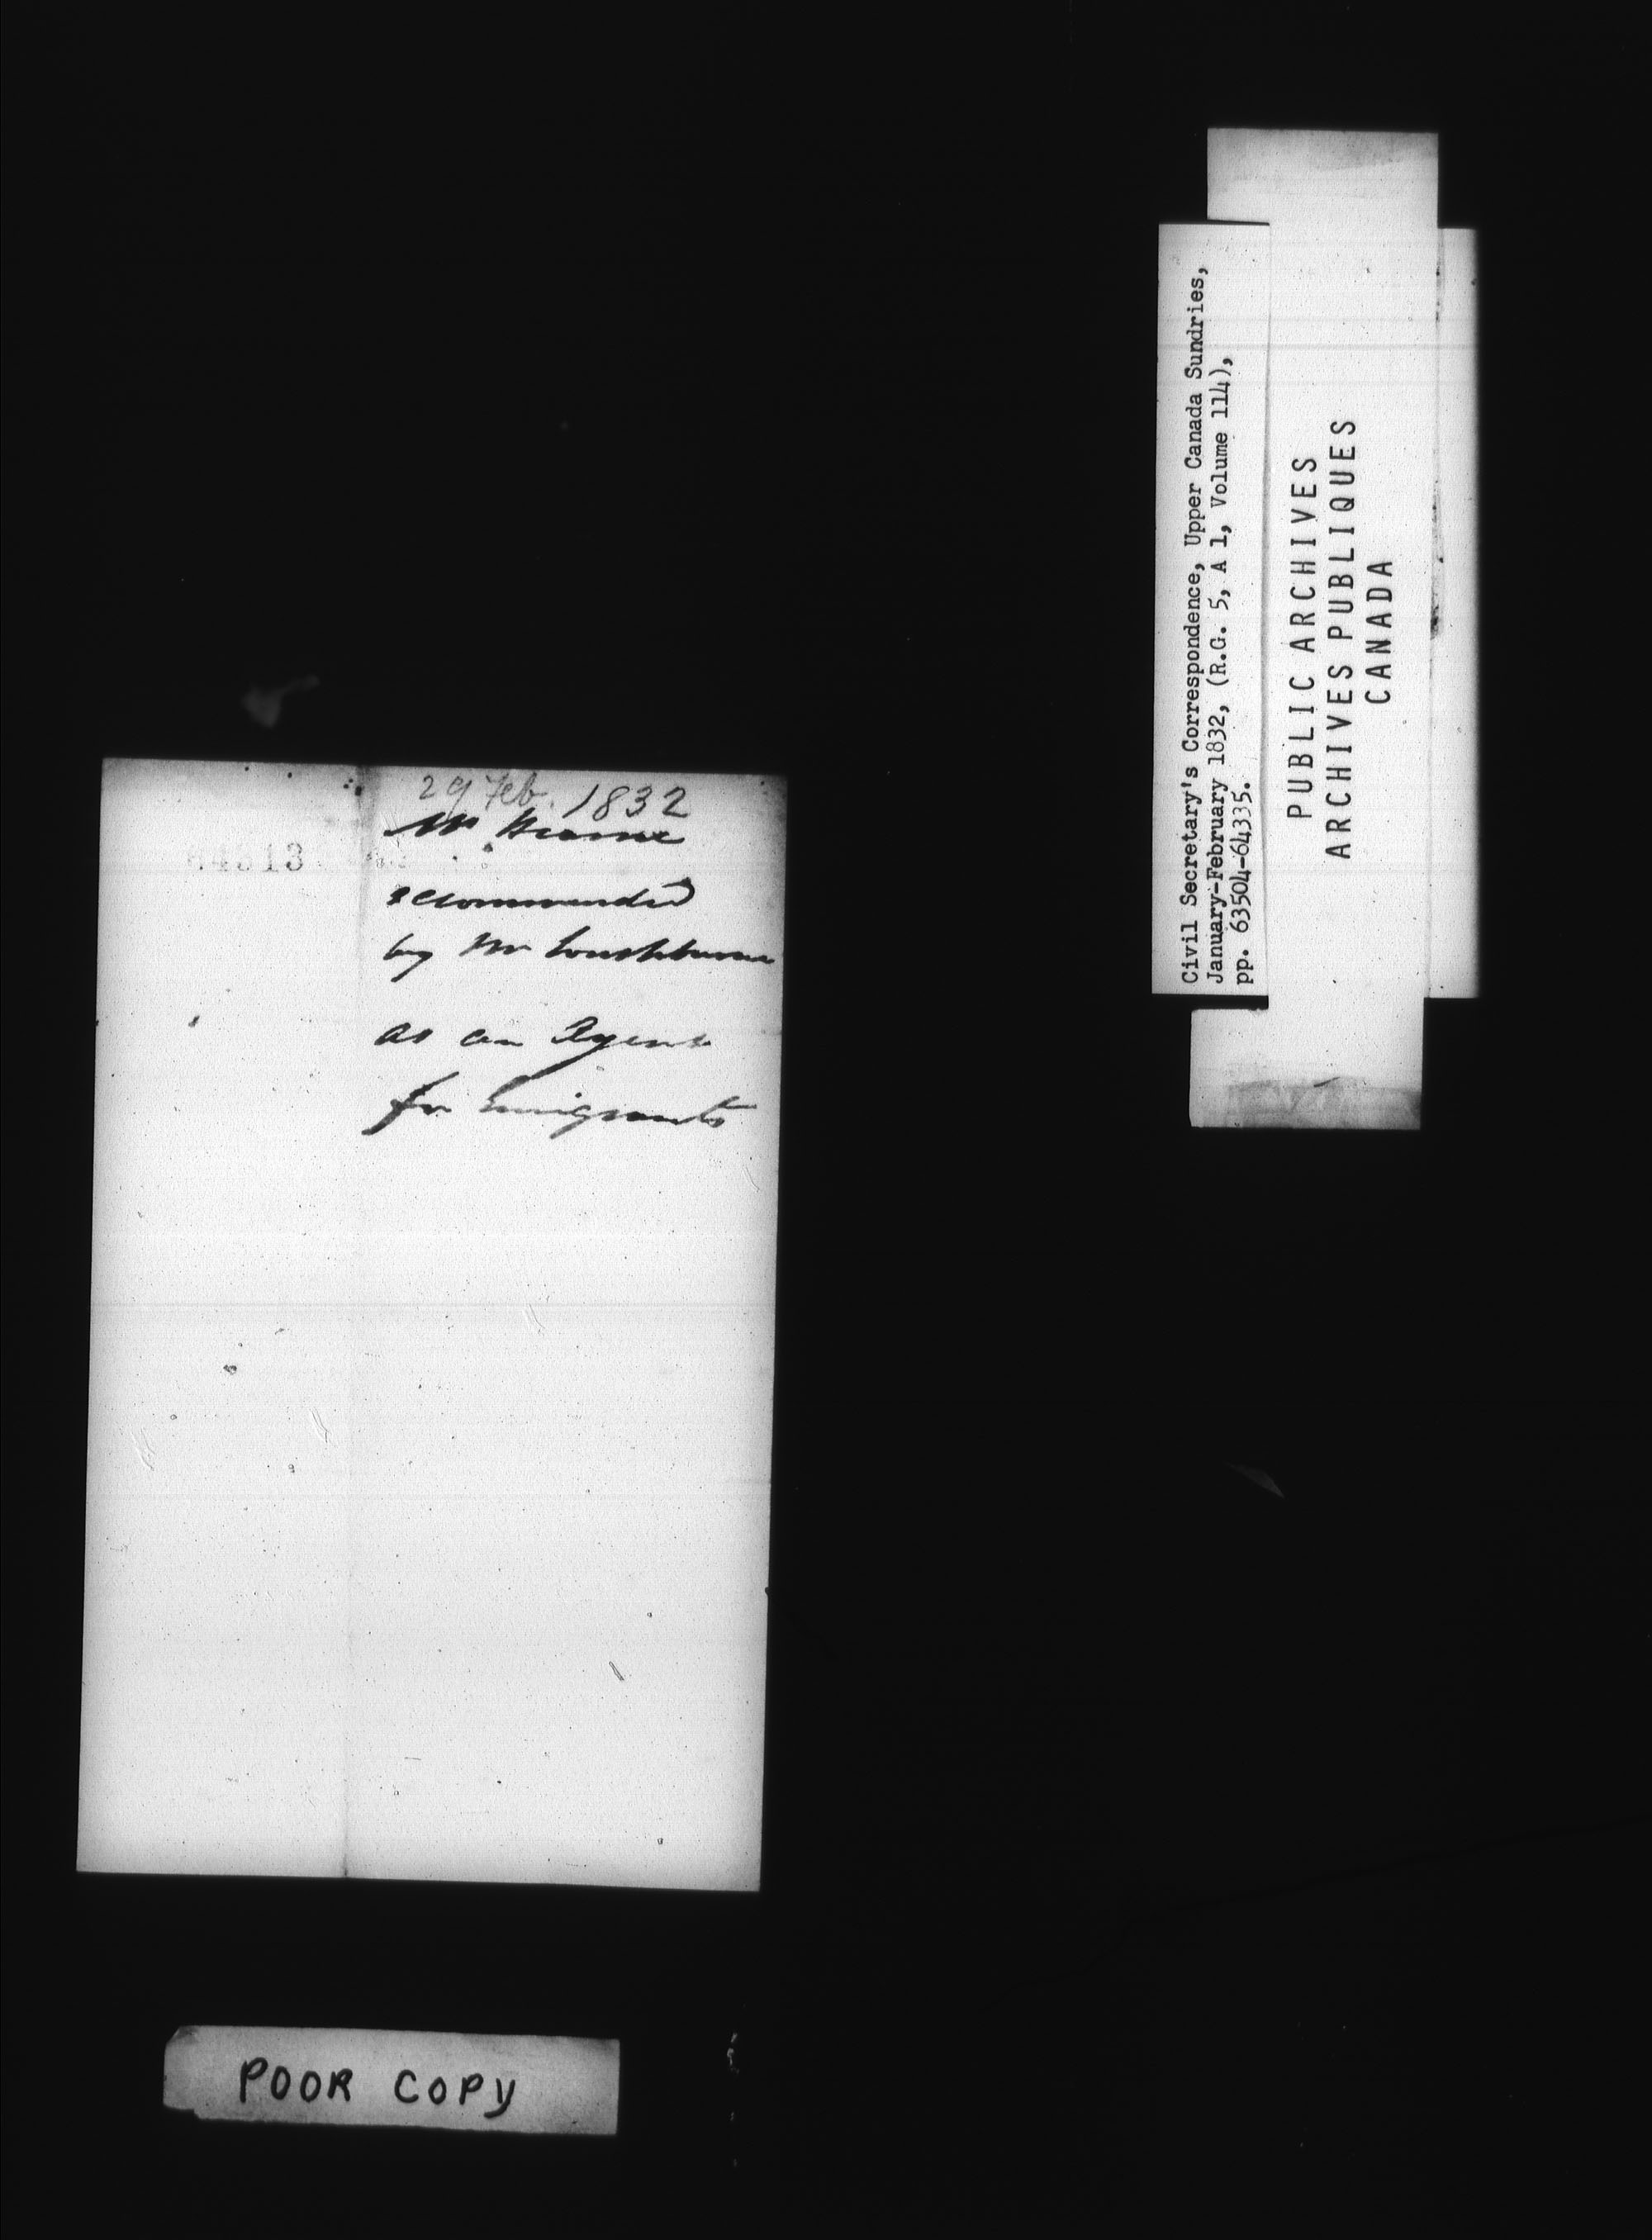 29 Feb. 1832
Mr
recommended
by Mr
as an Agent
for Emigrants
POOR COPY
Civil Secretary's Correspondence, Upper Canada Sundries,
January-February 1832, (R.G. 5, A 1, Volume 114),
pp. 63504-64335.
PUBLIC ARCHIVES
ARCHIVES PUBLIQUES
CANADA